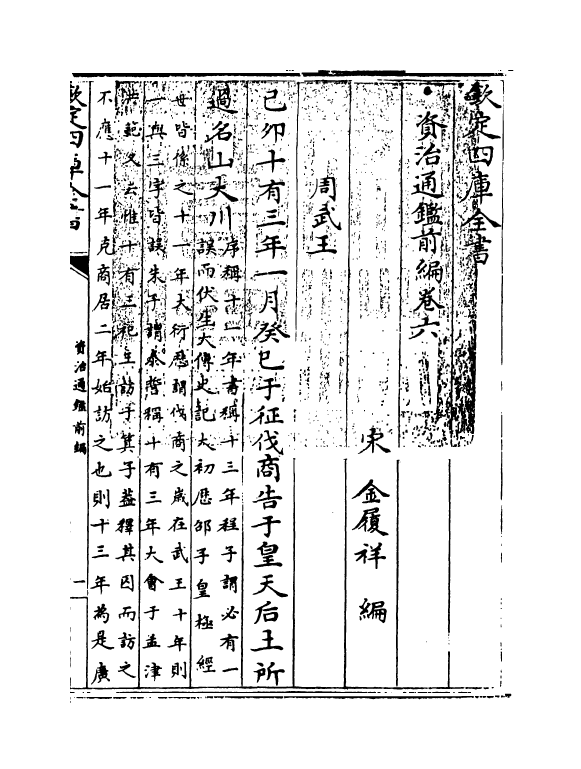 欽定四庫全書
資治通鑑前編卷六
宋 金履祥 編
周武王
己卯十有三年一月癸巳于征伐商告于皇天后土所
過名山大川
序稱十一年書稱十三年程子謂必有一
誤而伏生大傳史記太初歷邵子皇極經
世皆係之十一年大衍歷謂伐商之歲在武王十年則
一與三字皆誤朱子謂泰誓稱十有三年大會于孟津
洪範又云惟十有三祀王訪于箕子蓋釋其囚而訪之
不應十一年克商居二年始訪之也則十三年為是廣
欽定四庫全書
資治通鑑前編
一